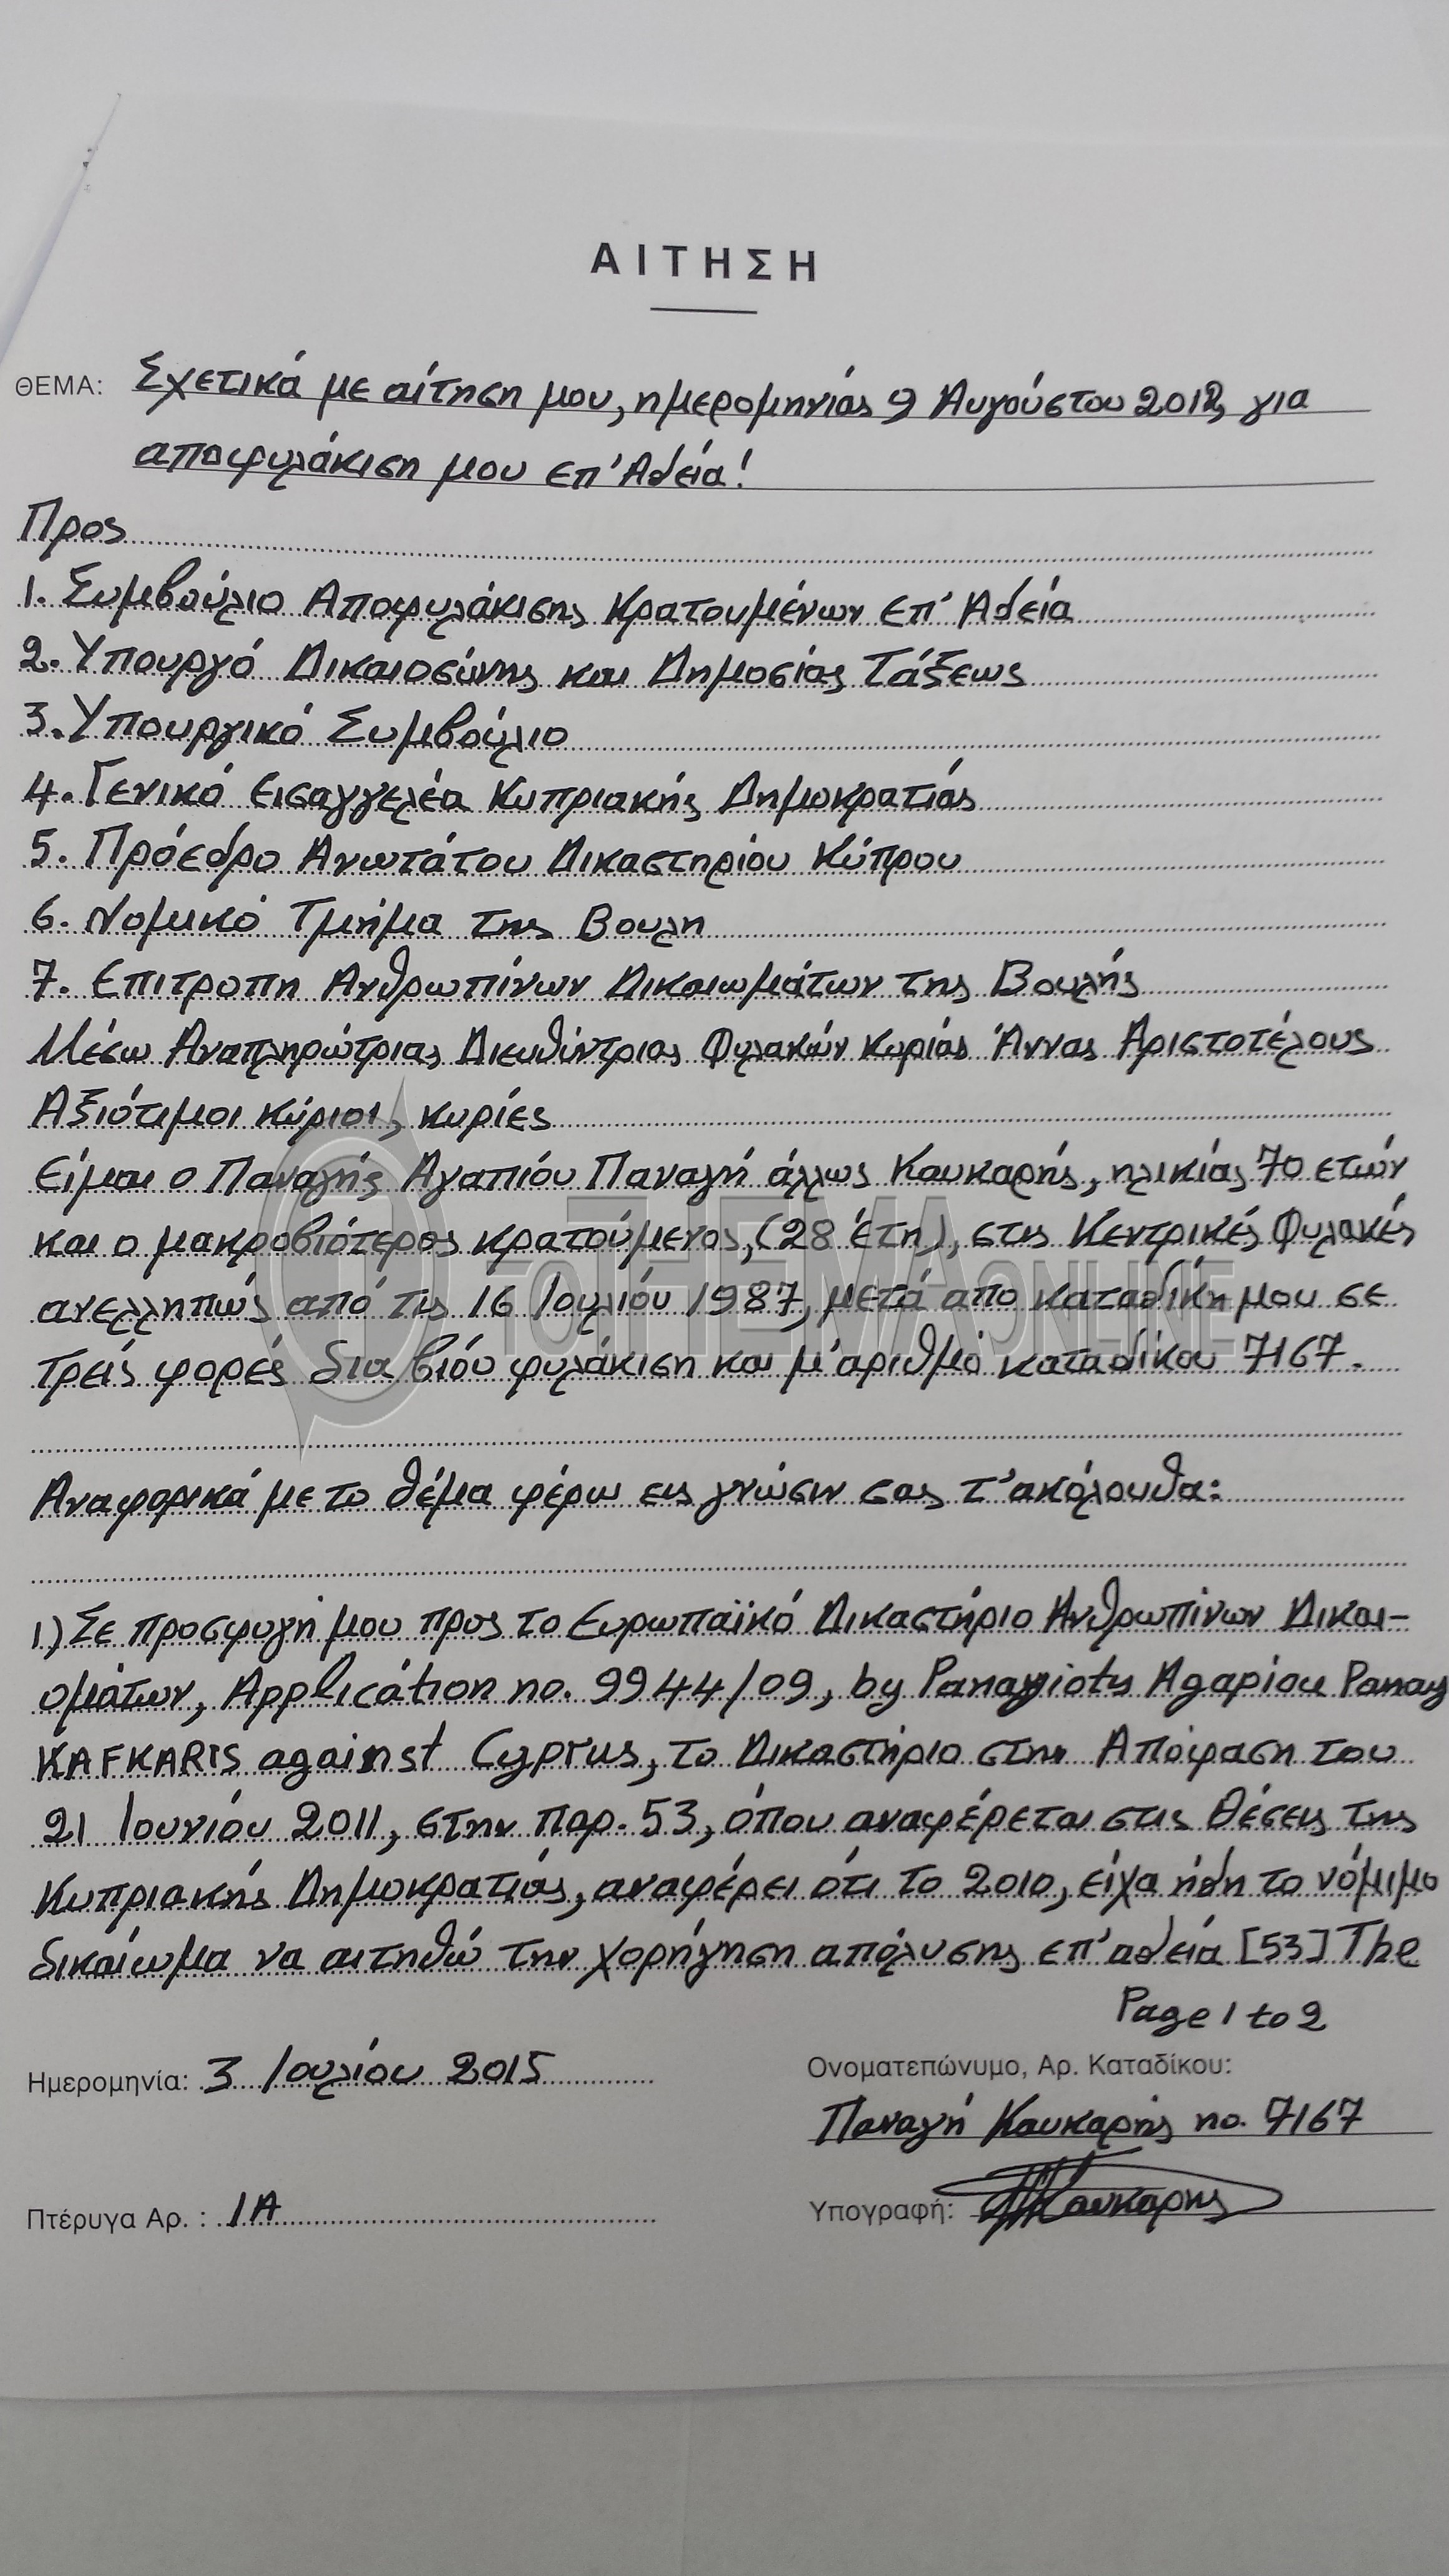 ΑΙΤΗΣΗ
ΘΕΜΑ: Σχετικά με αίτηση μου, ημερομηνίας 9 Αυγούστου 2012, για
αποφυλάκιση μου επ' Αδεία!
Προς
1. Συμβούλιο Αποφυλάκισης Κρατουμένων επ' Αδεία
2. Υπουργό Δικαιοσύνης και Δημοσίας Τάξεως
3. Υπουργικό Συμβούλιο
4. Γενικό Εισαγγελέα Κυπριακής Δημοκρατίας
5. Πρόεδρο Ανωτάτου Δικαστηρίου Κύπρου
6. Νομικό Τμήμα της Βουλη
7. Επιτροπη Ανθρωπίνων Δικαιωμάτων της Βουλής
Μέσω Αναπληρώτριας Διευθύντριας Φυλακών Κυρίας Άννας Αριστοτέλους
Αξιότιμοι κύριοι, κυρίες
Είμαι ο Παναγής Αγαπίου Παναγή άλλως Καυκαρής, ηλικίας 70 ετών
και ο μακροβιότερος κρατούμενος, (28 έτη), στις Κεντρικές Φυλακές
ανελληπώς από τις 16 Ιουλίου 1987, μετά απο καταδίκη μου σε
τρείς φορές δια βίου φυλάκιση και μ' αριθμό καταδίκου 7167.
Αναφορικά με το θέμα φέρω εις γνώσιν σας τ' ακόλουθα:
1) Σε προσφυγή μου προς το Ευρωπαϊκό Δικαστήριο Ανθρωπίνων Δικαι-
ομάτων, Application no. 9944/09, by Panayiotis Agapiou Panay
KAFKARIS against Cyprus, το Δικαστήριο στην Απόφαση του
21 Ιουνίου 2011, στην παρ. 53, όπου αναφέρεται στις θέσεις της
Κυπριακής Δημοκρατίας, αναφέρει ότι το 2010, είχα ήδη το νόμιμο
δικαίωμα να αιτηθώ την χορήγηση απόλυσης επ' αδεία [53] The
Page 1 to 2
Ημερομηνία: 3 Ιουλίου 2015
Ονοματεπώνυμο, Αρ. Καταδίκου:
Παναγή Καυκαρής no. 7167
Πτέρυγα Αρ. : 1Α
Υπογραφή: Καυκαρης
ΤΟ ΤΗΕΜΑ ONLINE